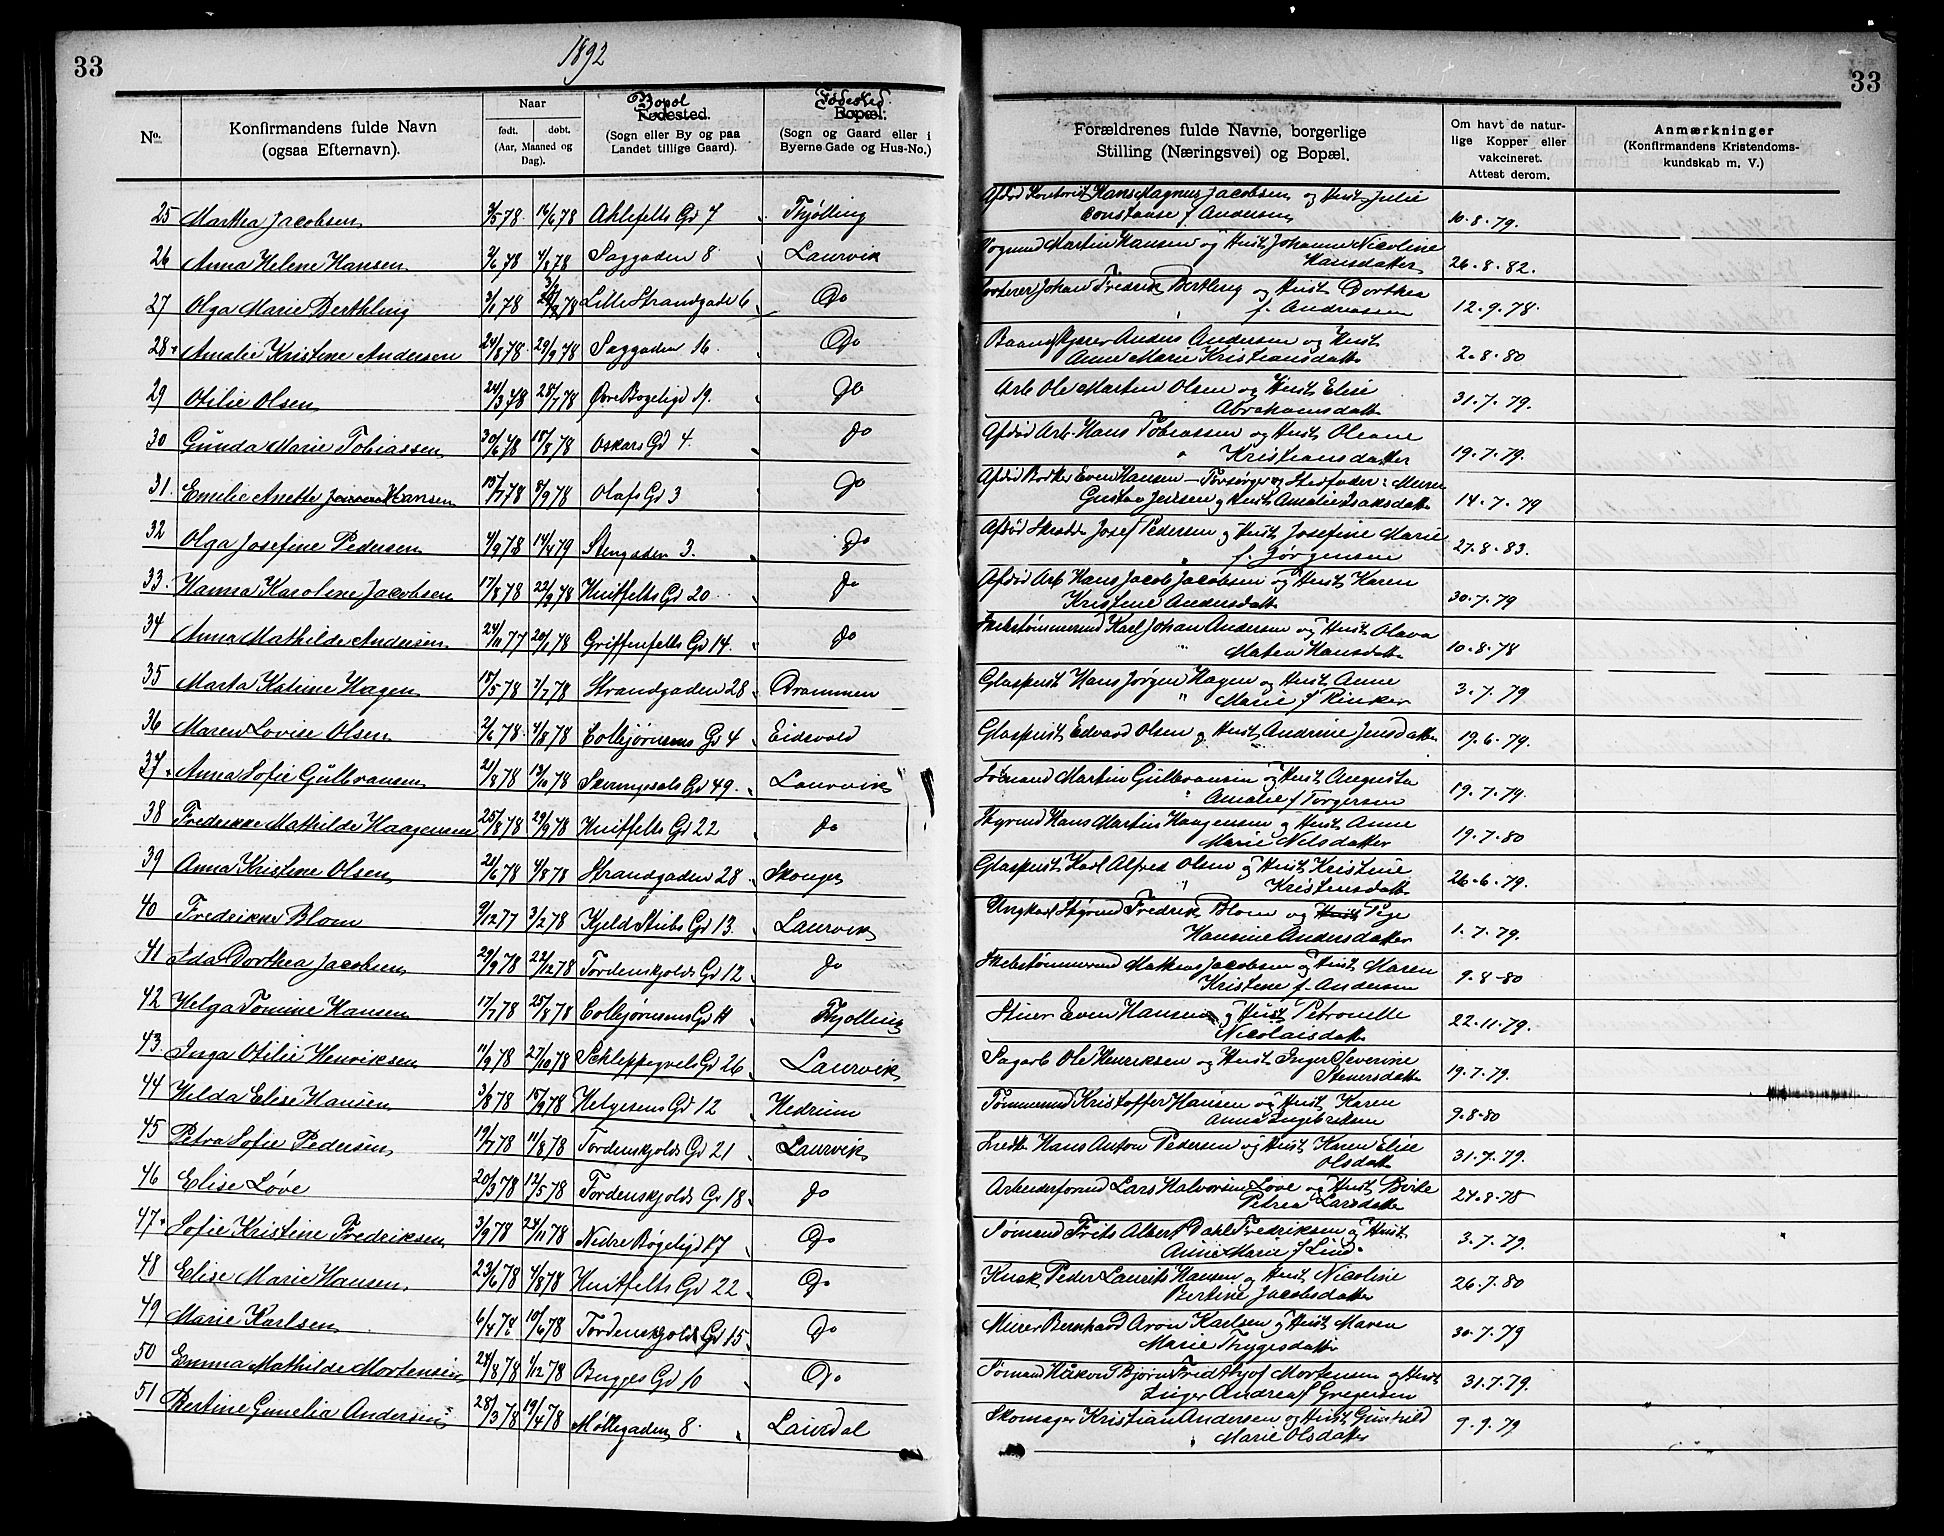 33
1892
33
No.
Konfirmandens fulde Navn
(ogsaa Efternavn).
Naar
født.
døbt.
(Aar, Maaned og
Dag).
Bopæl
Fødested.
(Sogn eller By og paa
Landet tillige Gaard).
Fødested.
Bopæl.
(Sogn og Gaard eller i
Byerne Gade og Hus-No.)
Forældrenes fulde Navne, borgerlige
Stilling (Næringsvei) og Bopæl.
Om havt de natur-
lige Kopper eller
vakcineret.
Attest derom.
Anmærkninger
(Konfirmandens Kristendoms-
kundskab m. V.)
25 Martha Jacobsen 3/5 78 16/6 78 Ahlefelts Gd 7 Thjølling Afdød Kontorist Hans Magnus Jacobsen og Hust. Julie
Constanse f. Andersen 10-8-79.
26 Anna Helene Hansen 2/6 78 4/8 78 Saggaden 8 Laurvik Vognmd Martin Hansen og Hust. Johanne Nicoline
Hansdatter 26-8-82.
27 Olga Marie Berthling 3/1 78 Lille Strandgade 6 Do Sorterer Johan Fredrik Bertling og Hust. Dorthea
f. Andreasen 12.9.78.
28 Amalie Kristine Andersen 24/8 78 29/9 78 Saggaden 16. Do Anders Andersen og Hust.
Anne Marie Kristiansdatt 2-8-80
29 Otilie Olsen 24/3 78 28/7 78 Øvre Bøgeligd 19. Do Arb Ole Martin Olsen og Hust Elise
Abrahamsdatt 31.7.79.
30 Gunda Marie Tobiassen 30/6 78 18/8 78 Oskars Gd 4. Do Afdød Arb. Hans Tobiassen og Hust Oleane
Kristiansdatter 19.7.79.
31. Emilie Anette Hansen 15/7 78 8/9 78 Olafs Gd 3 Do Afdød Even Hansen - Forsørger og Stedfader: Murer
Gustav Jensen og Hust Amalie Isaksdatt 14.7.79
32 Olga Josefine Pedersen 4/9 78 14/4 79 Stengaden 3. Do Afdød Skrædd. Josef Pedersen og Hust Josefine Marie
f. Jørgensen 27.8.83.
33. Hanna Karoline Jacobsen 17/8 78 22/9 78 Huitfelts Gd 20 Do Afdød Arb Hans Jacob Jacobsen og Hust Karen
Kristine Andersdatt 30.7.79
34 Anna Mathilde Andersen 24/11 77 20/1 78 Griffenfelts Gd 14. Do Skibstømmermd Karl Johan Andersen og Hust Olava
Maten Hansdatt 10-8-78
35 Marta Katrine Hagen 18/5 78 7/7 78 Strandgaden 28 Drammen Glaspust Hans Jørgen Hagen og Hust Anne
Marie f Rinker 3.7.79
36 Maren Lovise Olsen 2/6 78 4/8 78 Colbjørnsens Gd 4 Eidsvold Glaspust Edvard Olsen og Hust Andrine Jensdatt 19.6.79.
37. Anna Sofie Gulbransen 2/8 78 13/10 78 Skiringssals Gd 49. Laurvik Sømand Martin Gulbransen og Hust Augusta
Amalie f Torgersen 19.7.79.
38 Fredrikke Mathilde Haagensen 25/8 78 29/9 78 Huitfelts Gd 22 Do Styrmd Hans Martin Haagensen og Hust Anne
Marie Nilsdatter 19.7.80
39 Anna Kristine Olsen 21/6 78 4/8 78 Strandgaden 28 Skoger Glaspust Karl Alfred Olsen og Hust Kristine
Kristensdatt 26-6.79.
40 Fredrikke Blom 9/12 77 3/2 78 Kjeld Stubs Gd 13. Laurvik Ungkarl Styrmd Fredrik Blom og Hust Pige
Hansine Andersdatter 1.7.79.
41 Ida Dorthea Jacobsen 29/9 78 22/12 78 Tordenskjolds Gd 12 Do Skibstømmermd Mathias Jacobsen og Hust Maren
Kristine f. Andersen 9.8-80
42 Helga Tomine Hansen 17/7 78 25/8 78 Colbjørnsens Gd 11 Thjølling Stuer Even Hansen og Hust Petronelle
Nicolaisdatt 22.11.79.
43. Inga Otilie Henriksen 11/9 78 27/10 78 Schleppegrels Gd 26 Laurvik Sagarb Ole Henriksen og Hust Inger Severine
Steversdatt 19.7.79.
44 Hilda Elise Hansen 3/8 78 15/9 78 Helgesens Gd 12 Hedrum Tømmermd Kristoffer Hansen og Hust Karen
Anna Ingebretsen 9.8-80
45 Petra Sofie Pedersen 19/7 78 11/8 78 Tordenskjolds Gd 21 Laurvik Hans Anton Pedersen og Hust Karen Elise
Olsdatt 31.7.79.
46 Elise Løve 20/3 78 12/5 78 Tordenskjolds Gd 18 Do Arbeiderformd Lars Halvorsen Løve og Hust
Petrea Larsdatt 27.8.78
47. Sofie Kristine Fredriksen 3/9 78 24/11 78 Nedre Bøgeligd 17 Do Sømand Frits Albert Dahl Fredriksen og Hust
Anne Marie f Lind. 3.7.79.
48 Elise Marie Hansen 23/6 78 4/8 78 Huitfelts Gd 22 Do Kusk Peder Laurits Hansen og Hust Nicoline
Bertine Jacobsdatt 26.7.80
49 Marie Karlsen 6/4 78 10/6 78 Tordenskjolds Gd 15 Do Murer Bernhard Aron Karlsen og Hust Maren
Marie Thygesdatt 30.7.79
50 Emma Mathilde Mortensen 28/8 78 1/12 78 Bugges Gd 10 Do Sømand Bjørn Fridthjof Mortensen og Hust
Inger Andrea f Gregersen 31.7.79.
51 Bertine Gunelia Andersen 28/3 78 19/4 78 Møllegaden 8. Laurdal Skomager Kristian Andersen og Hust Gunhild
Marie Olsdatter 9.9.79